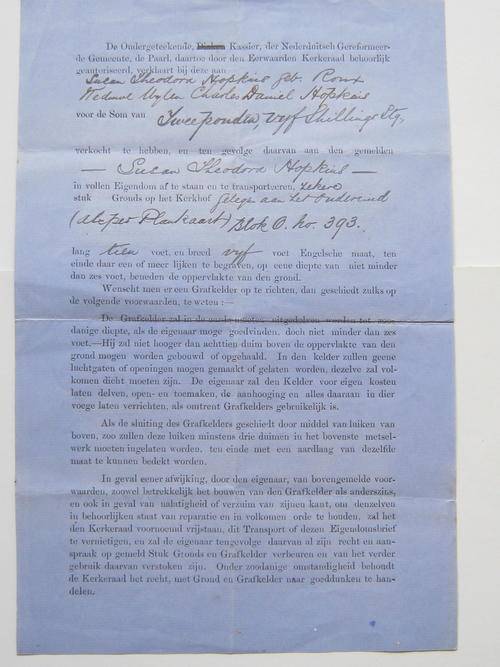 De Ondergeteekende, Diaken Kassier, der Nederduitsch Gereformeer-
de Gemeente, de Paarl, daartoe door den Eerwaarden Kerkeraad behoorlijk
geautoriseerd, verklaart bij deze aan
Susan Theodora Hopkins geb. Roux
Weduwe Wylen Charles Daniel Hopkins
voor de Som van Twee ponden, vyf Shillings Stg,
verkocht te hebben, en ten gevolge daarvan aan den gemelden
— Susan Theodora Hopkins —
in vollen Eigendom af te staan en te transporteren, zekere
stuk Gronds op het Kerkhof gelegen aan het Oudeeind
(als per Plankaart) Blok O. No. 393.
lang tien voet, en breed vyf voet Engelsche maat, ten
einde daar een of meer lijken te begraven, op eene diepte van niet minder
dan zes voet, beneden de oppervlakte van den grond.
Wenscht men er een Grafkelder op te richten, dan geschiedt zulks op
de volgende voorwaarden, te weten :—
De Grafkelder zal in de aarde moeten uitgedolven worden tot zoo-
danige diepte, als de eigenaar moge goedvinden, doch niet minder dan zes
voet.—Hij zal niet hooger dan achttien duim boven de oppervlakte van den
grond mogen worden gebouwd of opgehaald. In den kelder zullen geene
luchtgaten of openingen mogen gemaakt of gelaten worden, dezelve zal vol-
komen dicht moeten zijn. De eigenaar zal den Kelder voor eigen kosten
laten delven, open- en toemaken, de aanhooging en alles daaraan in dier
voege laten verrichten, als omtrent Grafkelders gebruikelijk is.
Als de sluiting des Grafkelders geschiedt door middel van luiken van
boven, zoo zullen deze luiken minstens drie duimen in het bovenste metsel-
werk moeten ingelaten worden, ten einde met een aardlaag van dezelfde
maat te kunnen bedekt worden.
In geval eener afwijking, door den eigenaar, van bovengemelde voor-
waarden, zoowel betrekkelijk het bouwen van den Grafkelder als anderszins,
en ook in geval van nalatigheid of verzuim van zijnen kant, om denzelven
in behoorlijken staat van reparatie en in volkomen orde te houden, zal het
den Kerkeraad voornoemd vrijstaan, dit Transport of dezen Eigendomsbrief
te vernietigen, en zal de eigenaar tengevolge daarvan al zijn recht en aan-
spraak op gemeld Stuk Gronds en Grafkelder verbeuren en van het verder
gebruik daarvan verstoken zijn. Onder zoodanige omstandigheid behoudt
de Kerkeraad het recht, met Grond en Grafkelder naar goeddunken te han-
delen.